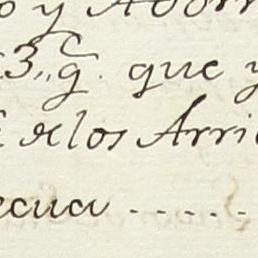 y Ador
3,, q. que y
de los Arri
ecua . . . . .